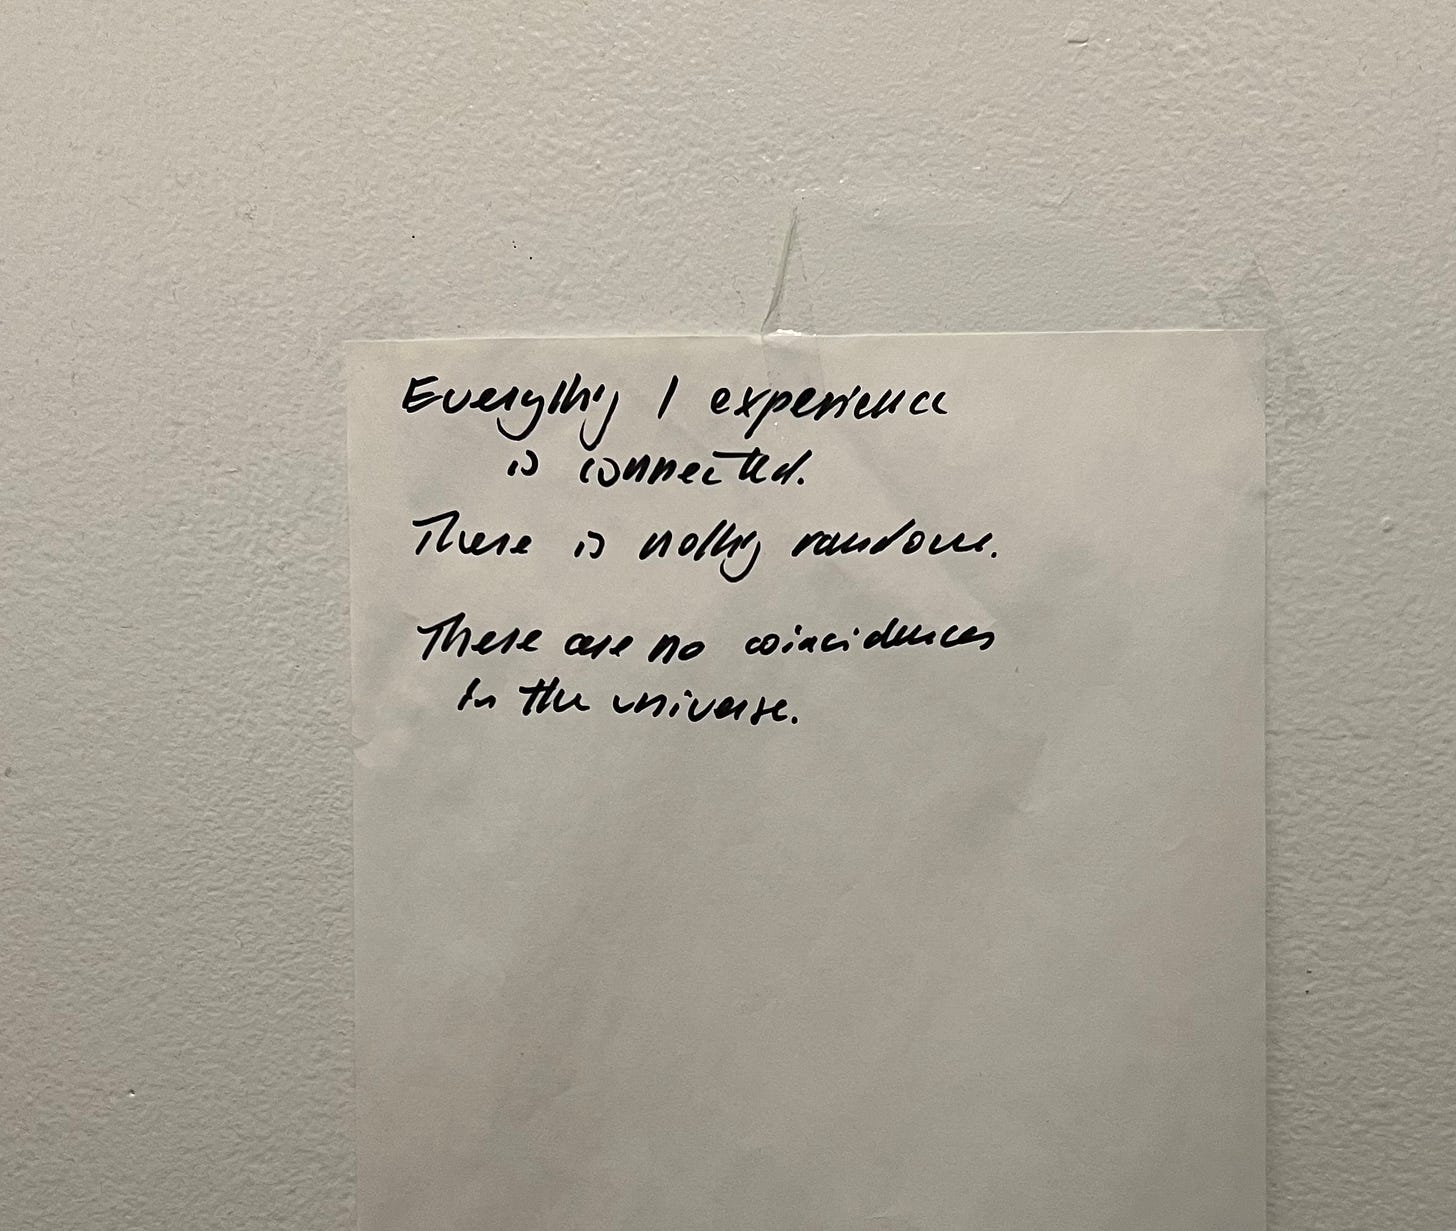 Everything I experience
is connected.
There is nothing random.
There are no coincidences
in the universe.